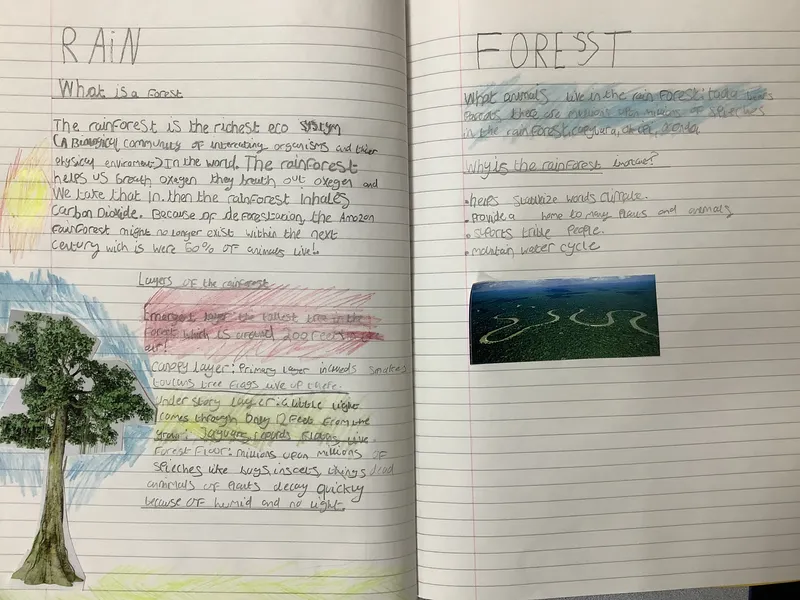 RAiN
What is a Forest
The rainforest is the richest eco systym
(A Biological community of interacting organisms and their
physical enviroment) In the world. The rainforest
helps us breath oxegen they breath out oxegen and
We take that in. then the rainforest inhales
Carbon Dioxide. Because of deforestacion, the Amazon
rainforest might no longer exist within the next
century wich is were 60% of animals live!
Layers of the rainforest
Emergent layer: the tallest tree in the
Forest which is around 200 Feet in
air!
canopy Layer: Primary Layer snakes
toucans tree Frogs live up there.
under story layer: a little light
comes through only 12 Feet From the
Jaguars live
Forest Floor: millions upon millions of
speiches like bugs, insects, things dead
animals of Plants decay quickly
because of humid and no light.
FORESST
What animals live in the rain Forest:
Forests there are millions upon millions of speiches
in the rainforest,
Why is the rainforest
• helps words climate.
• Provide a home to many Plants and animals
• suports trible People.
• mountain water cycle